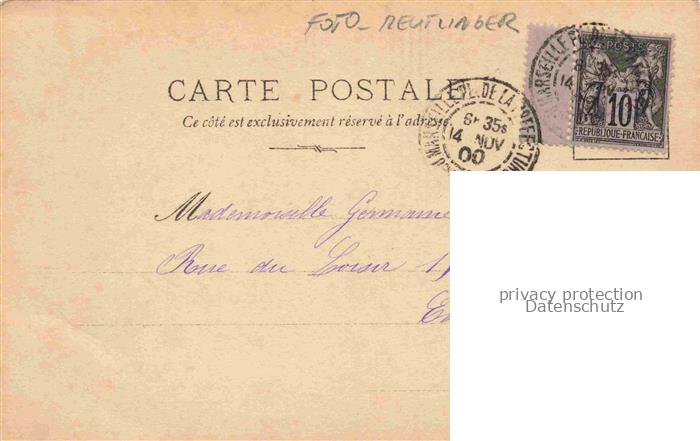 FOTO- REUTLINGER
CARTE POSTALE
Ce côté est exclusivement réservé à l'adresse
MARSEILLE PL. DE LA
6E 35s
14 NOV
00
MARSEILLE PL. D
14
POSTES
10
REPUBLIQUE FRANÇAISE
Mademoiselle Germaine
Rue du Loisir 1,
privacy protection
Datenschutz